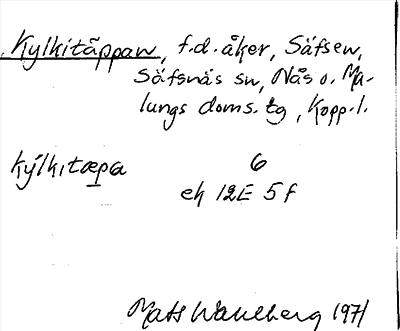 Kylkitäppan, f.d. åker, Säfsen,
Säfsnäs sn, Nås o. Ma-
lungs doms. tg, Kopp. l.
kýlkıtæpa 6
ek 12E 5f
Mats Wahlberg 1971